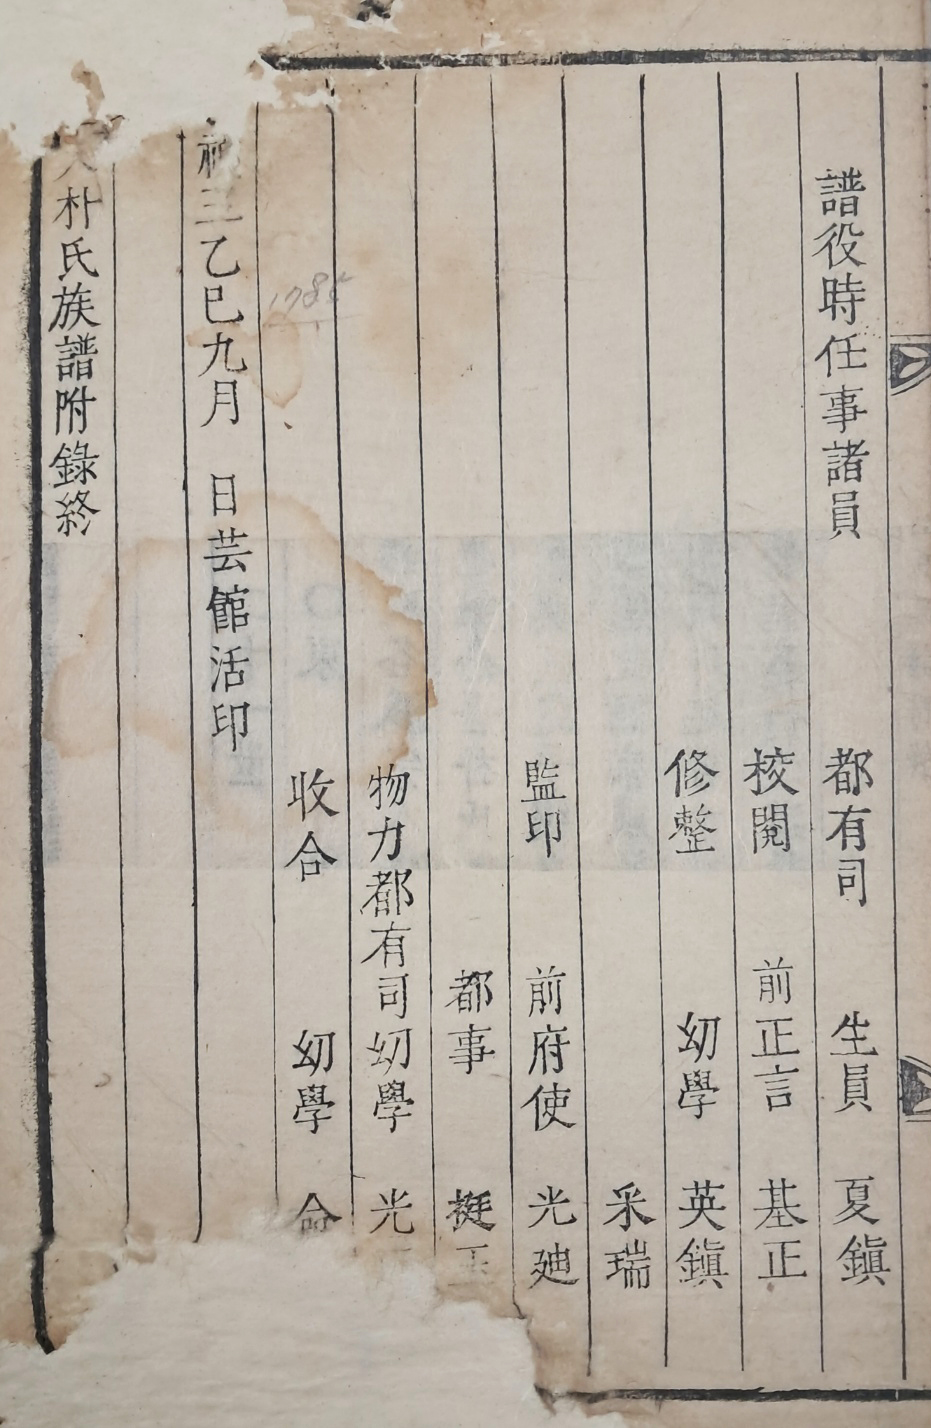 譜役時任事諸員 都有司 生員 夏鎭
校閱 前正言 基正
修整 幼學 英鎭
采瑞
監印 前府使 光廸
都事 挺玉
物力都有司 幼學 光
收合 幼學
1785
三乙巳九月 日芸館活印
朴氏族譜附錄終